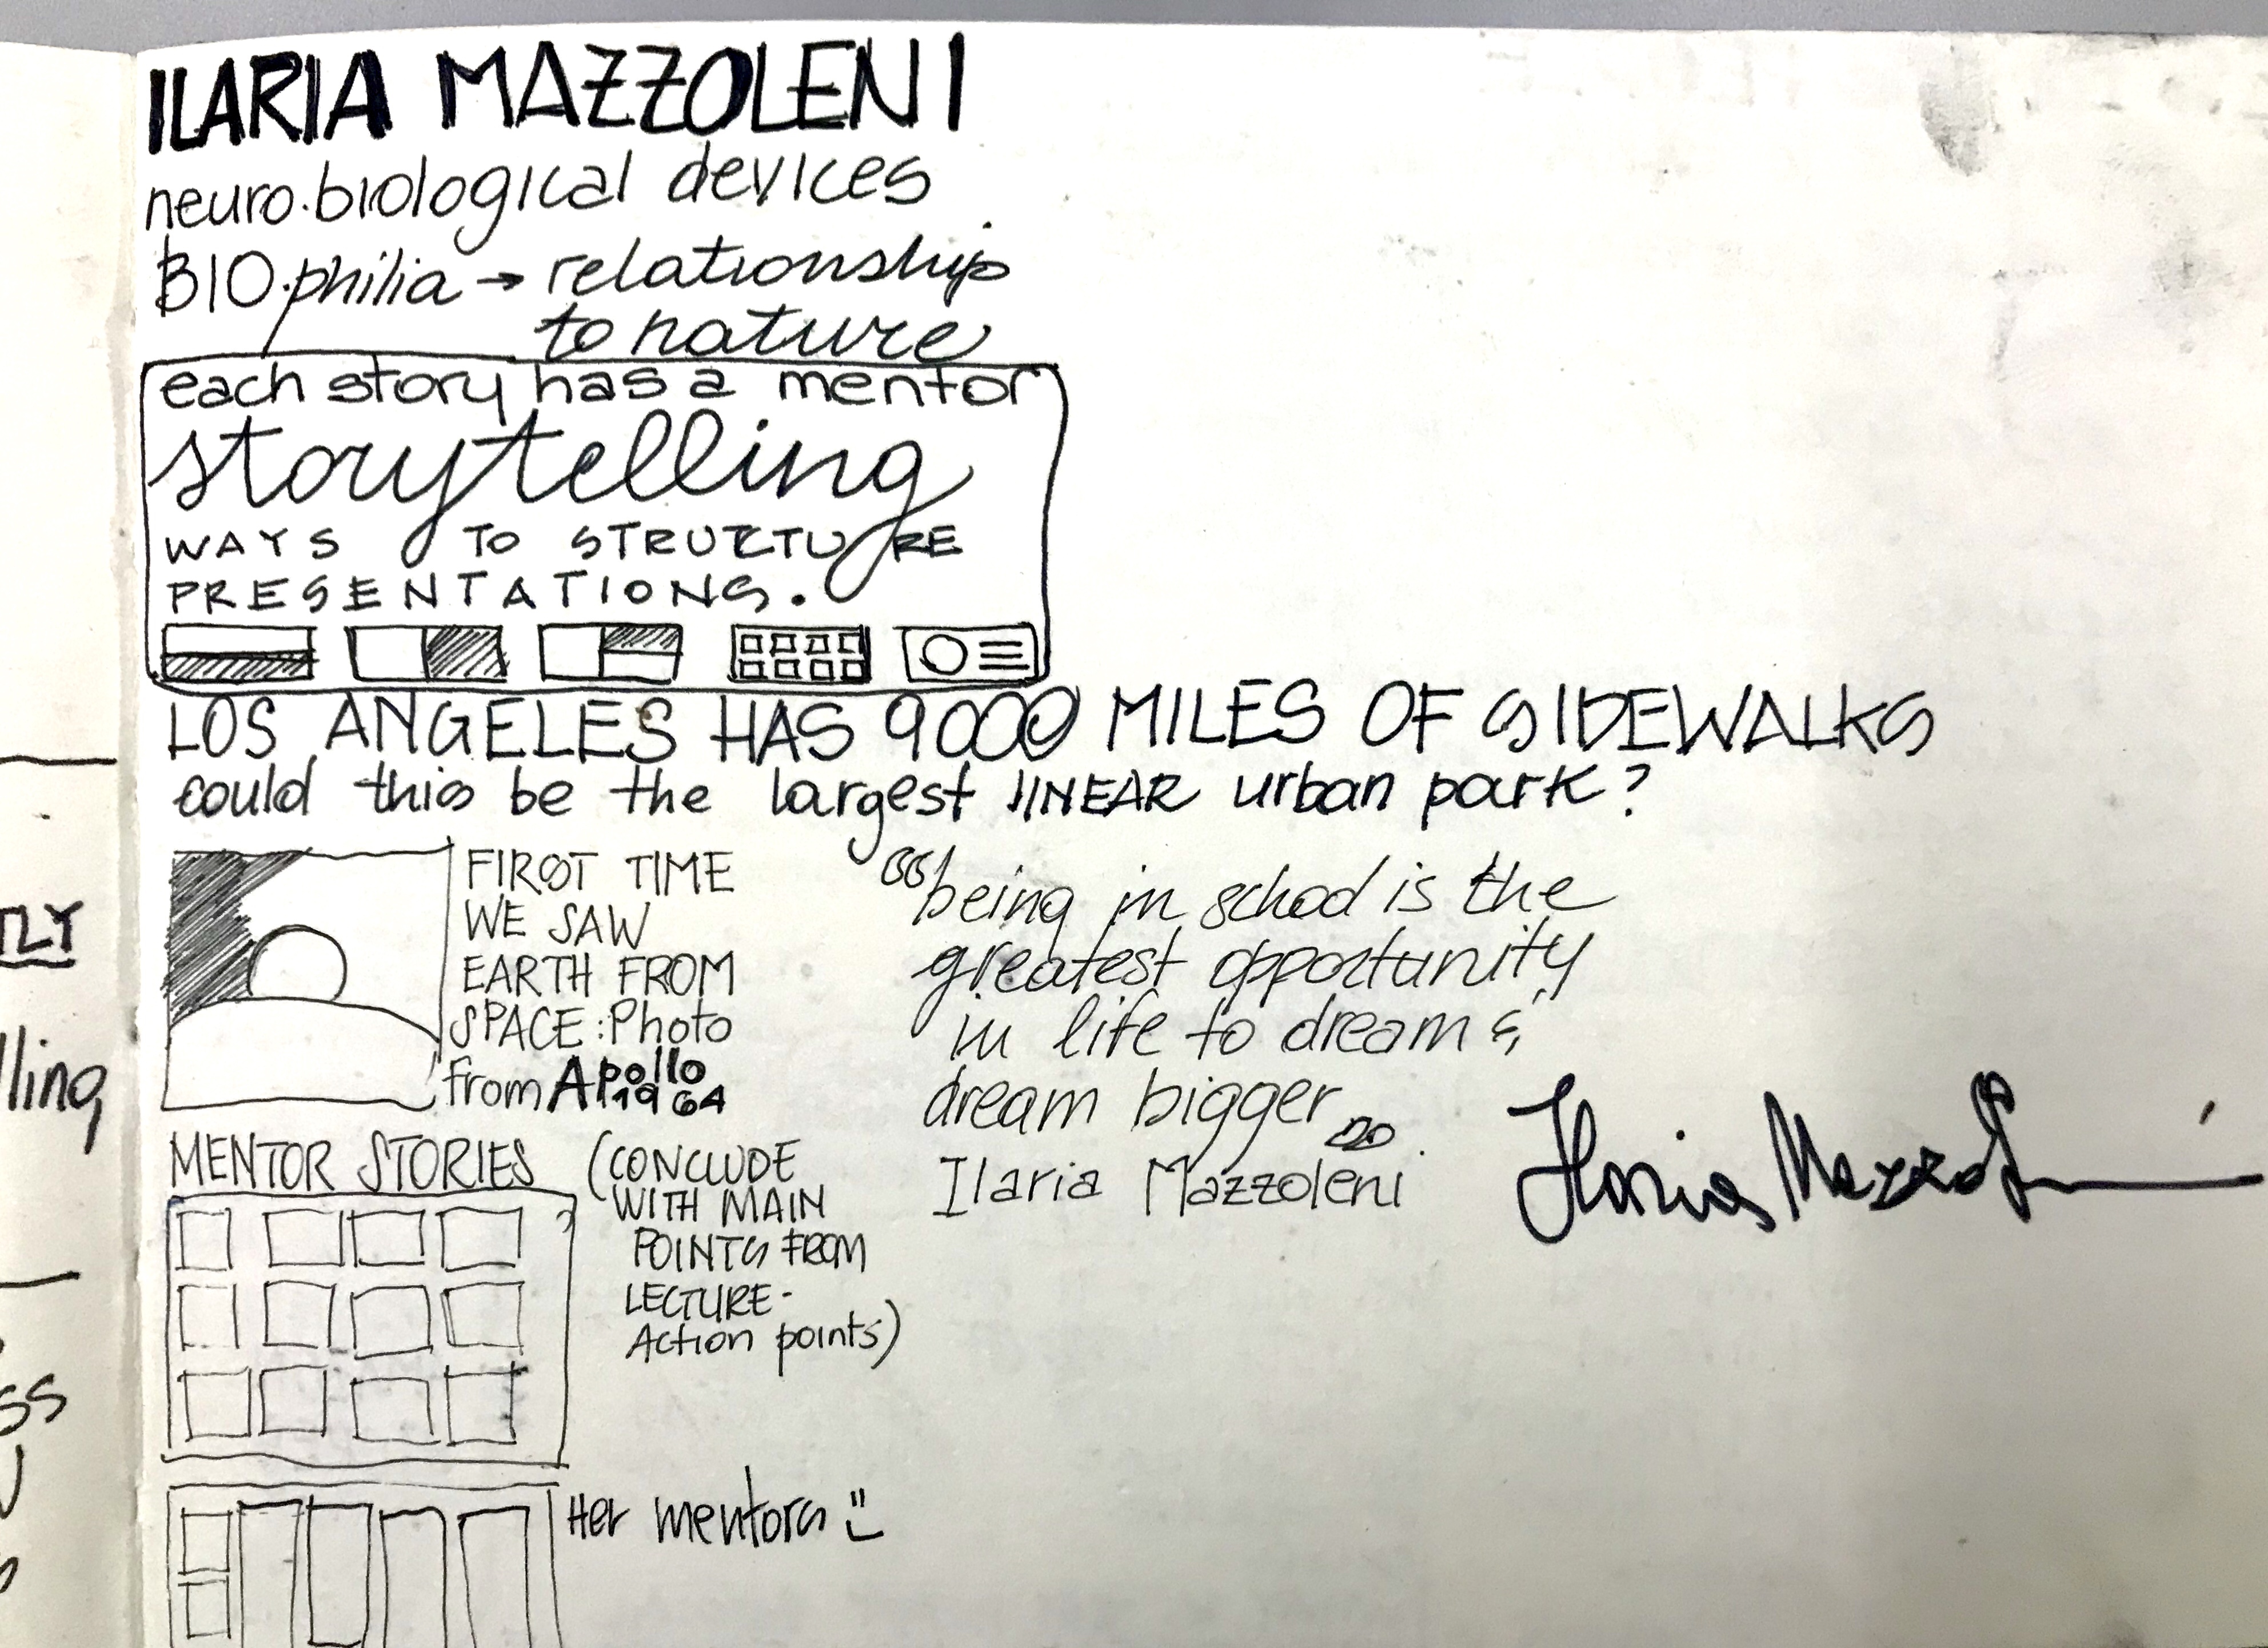 ILARIA MAZZOLENI
neuro.biological devices
BIO.philia → relationship
to nature
each story has a mentor
storytelling
WAYS TO STRUCTURE
PRESENTATIONS.
LOS ANGELES HAS 9000 MILES OF SIDEWALKS
could this be the largest LINEAR urban park?
FIRST TIME
WE SAW
EARTH FROM
SPACE: Photo
from Apollo
1964
"being in school is the
greatest opportunity
in life to dream &
dream bigger"
Ilaria Mazzoleni
Ilaria Mazzoleni
MENTOR STORIES
(CONCLUDE
WITH MAIN
POINTS FROM
LECTURE-
Action points)
Her mentors
TLY
lling
ss